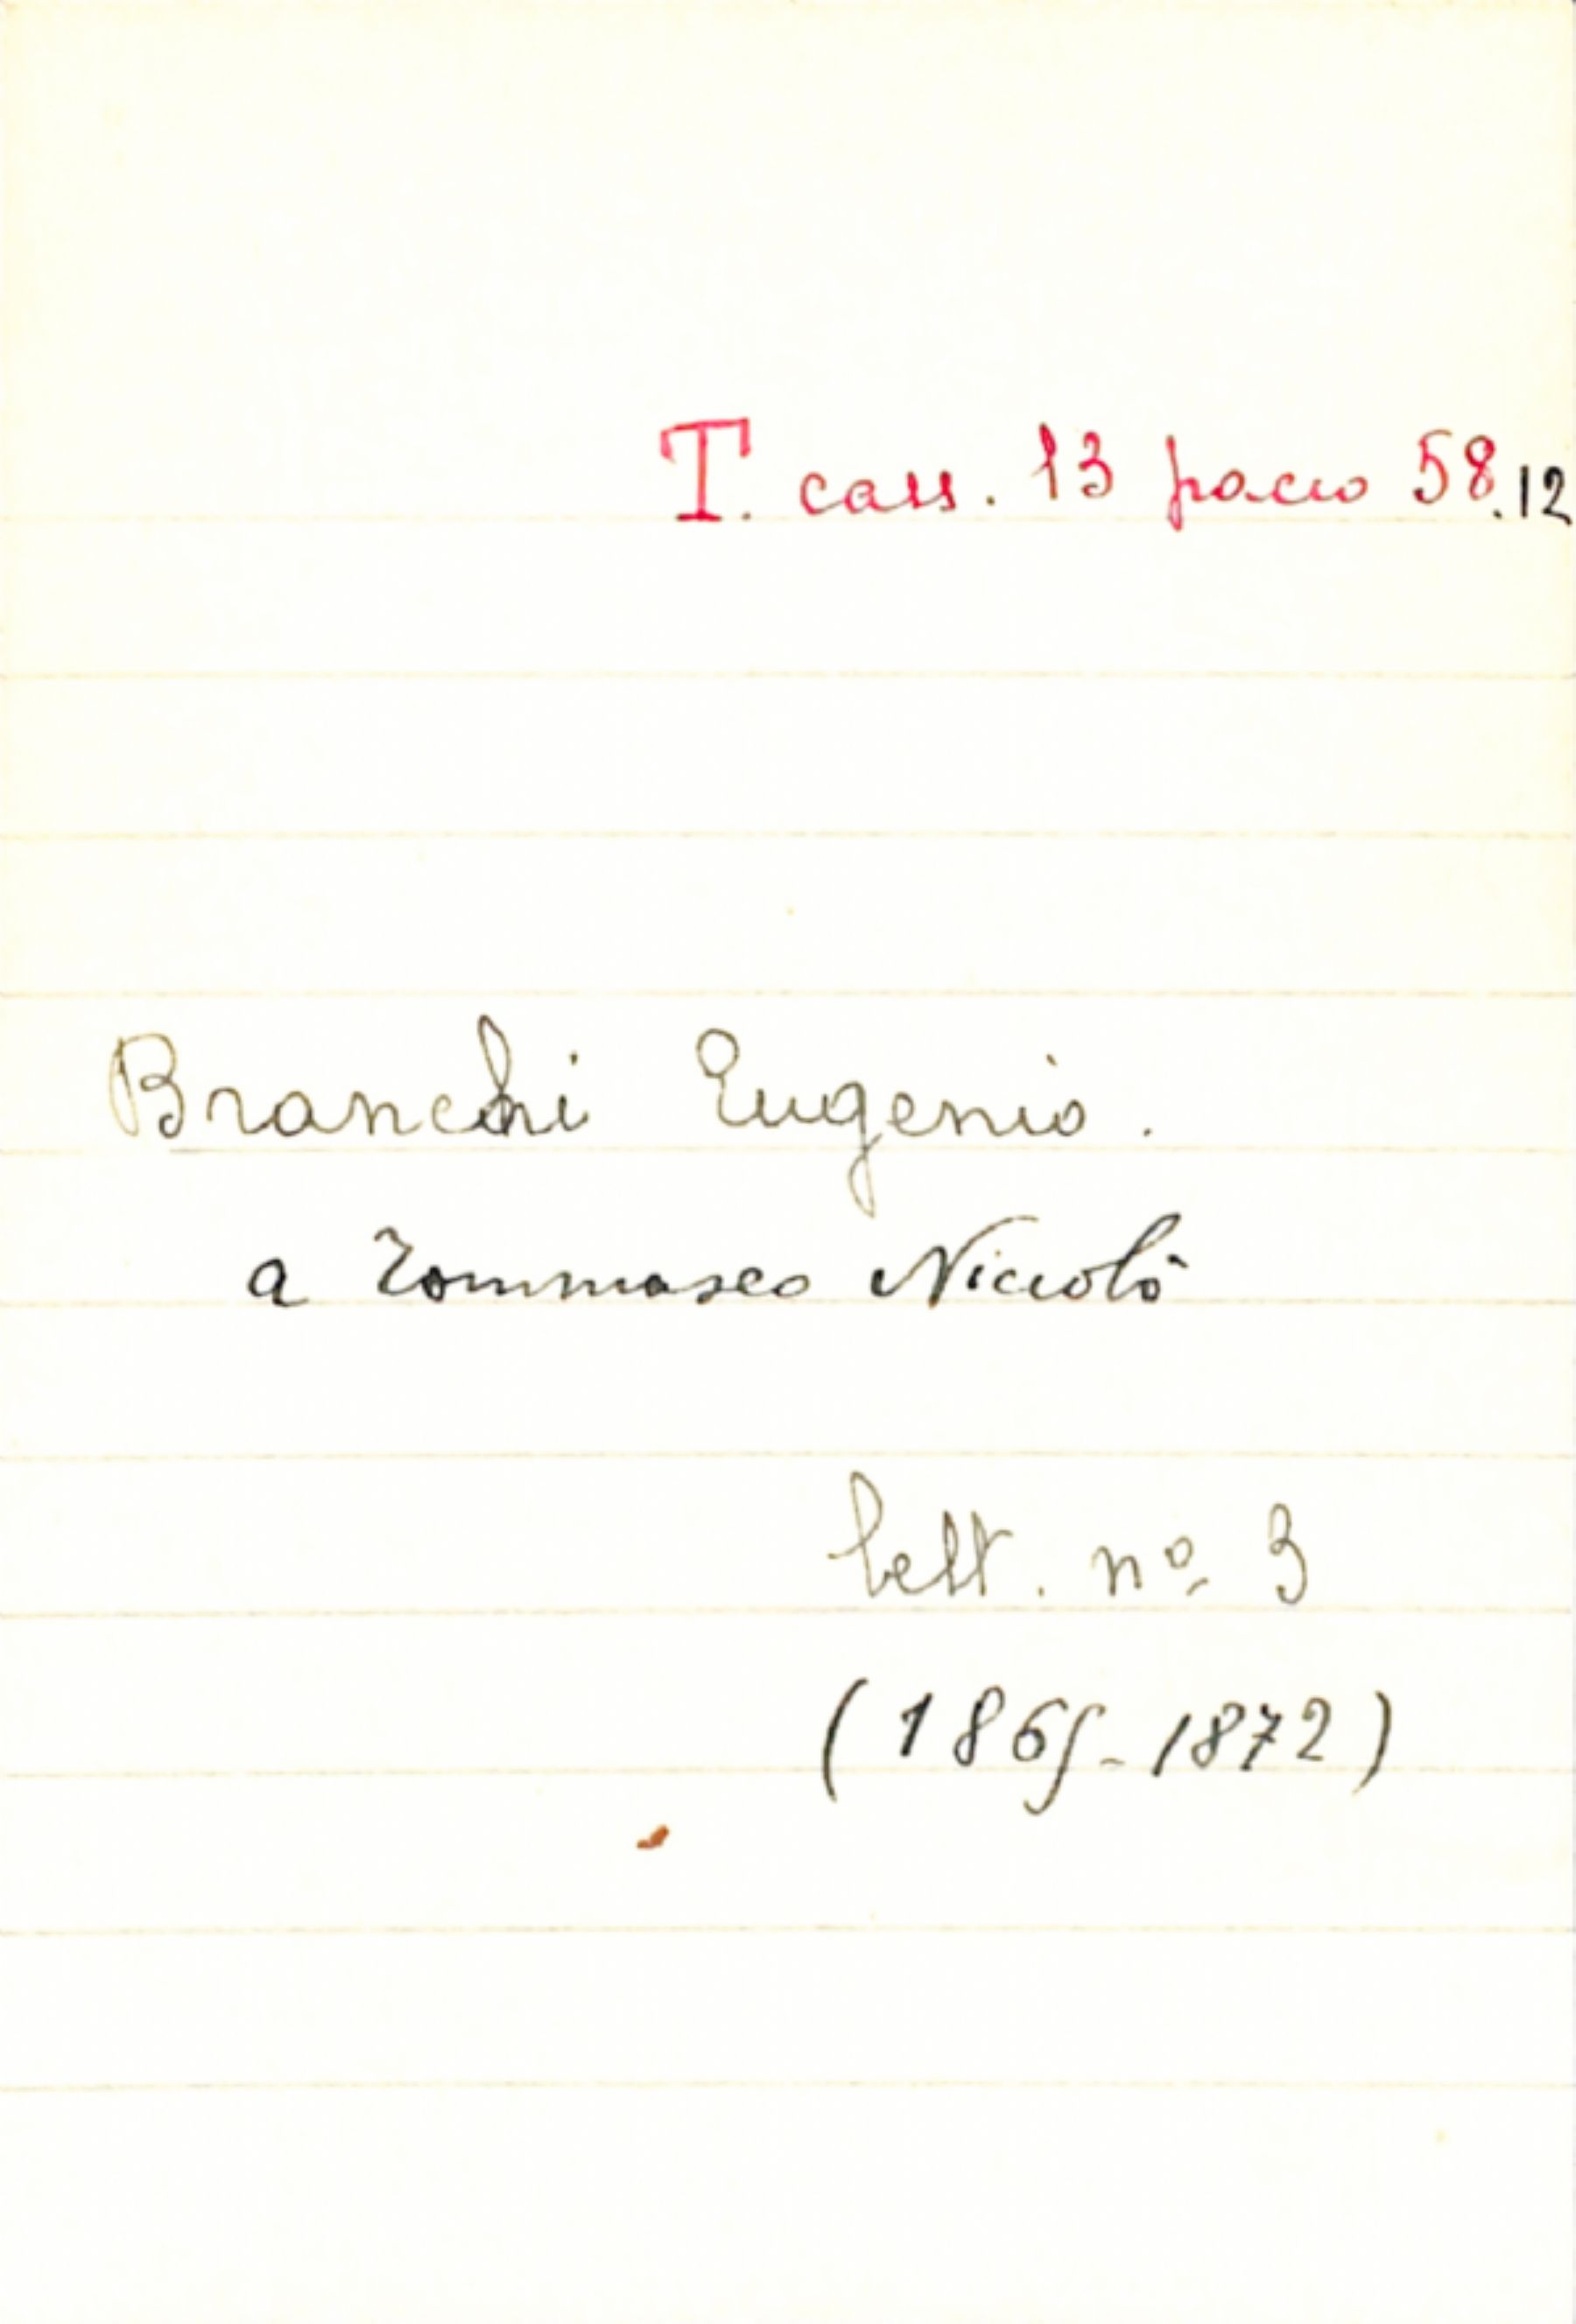 T. cass. 13 pacco 58.12
Branchi Eugenio.
a Tommaseo Niccolò
lett. nº 3
(1865-1872)